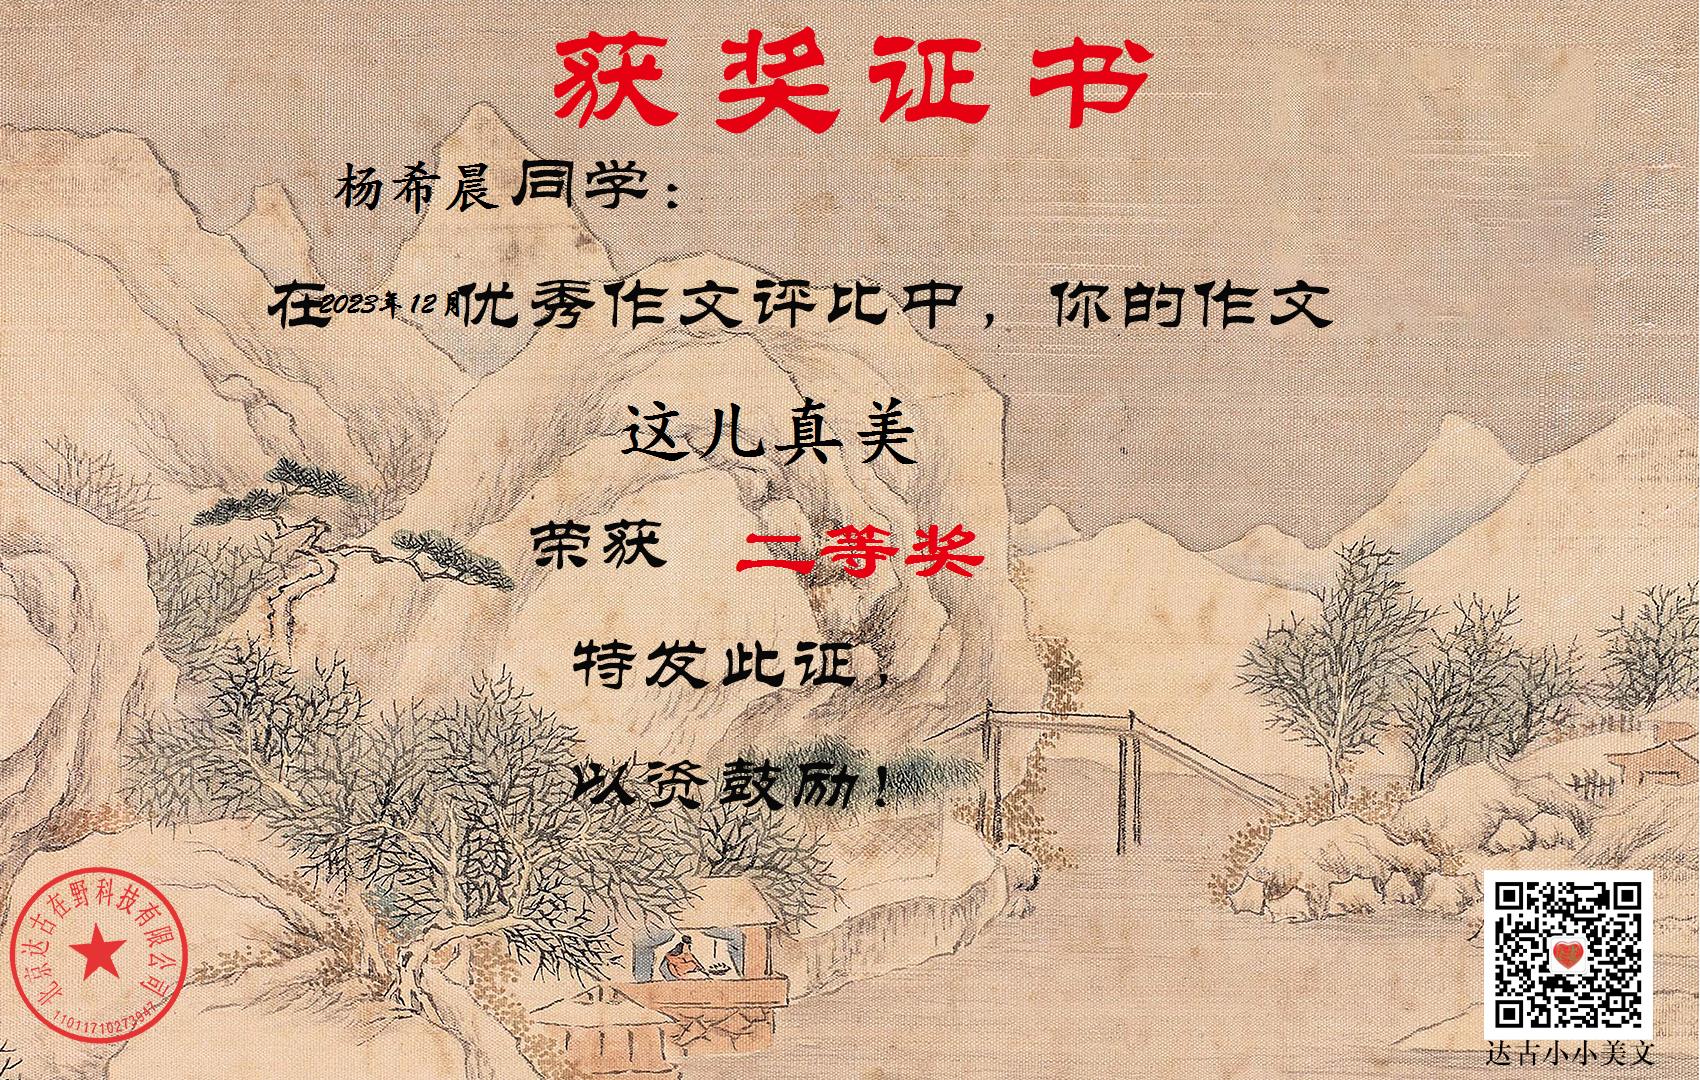 获奖证书
杨希晨同学：
在2023年12月优秀作文评比中，你的作文
这儿真美
荣获 二等奖
特发此证，
以资鼓励！
北京达古在野科技有限公司
11011710273947
达古小小美文